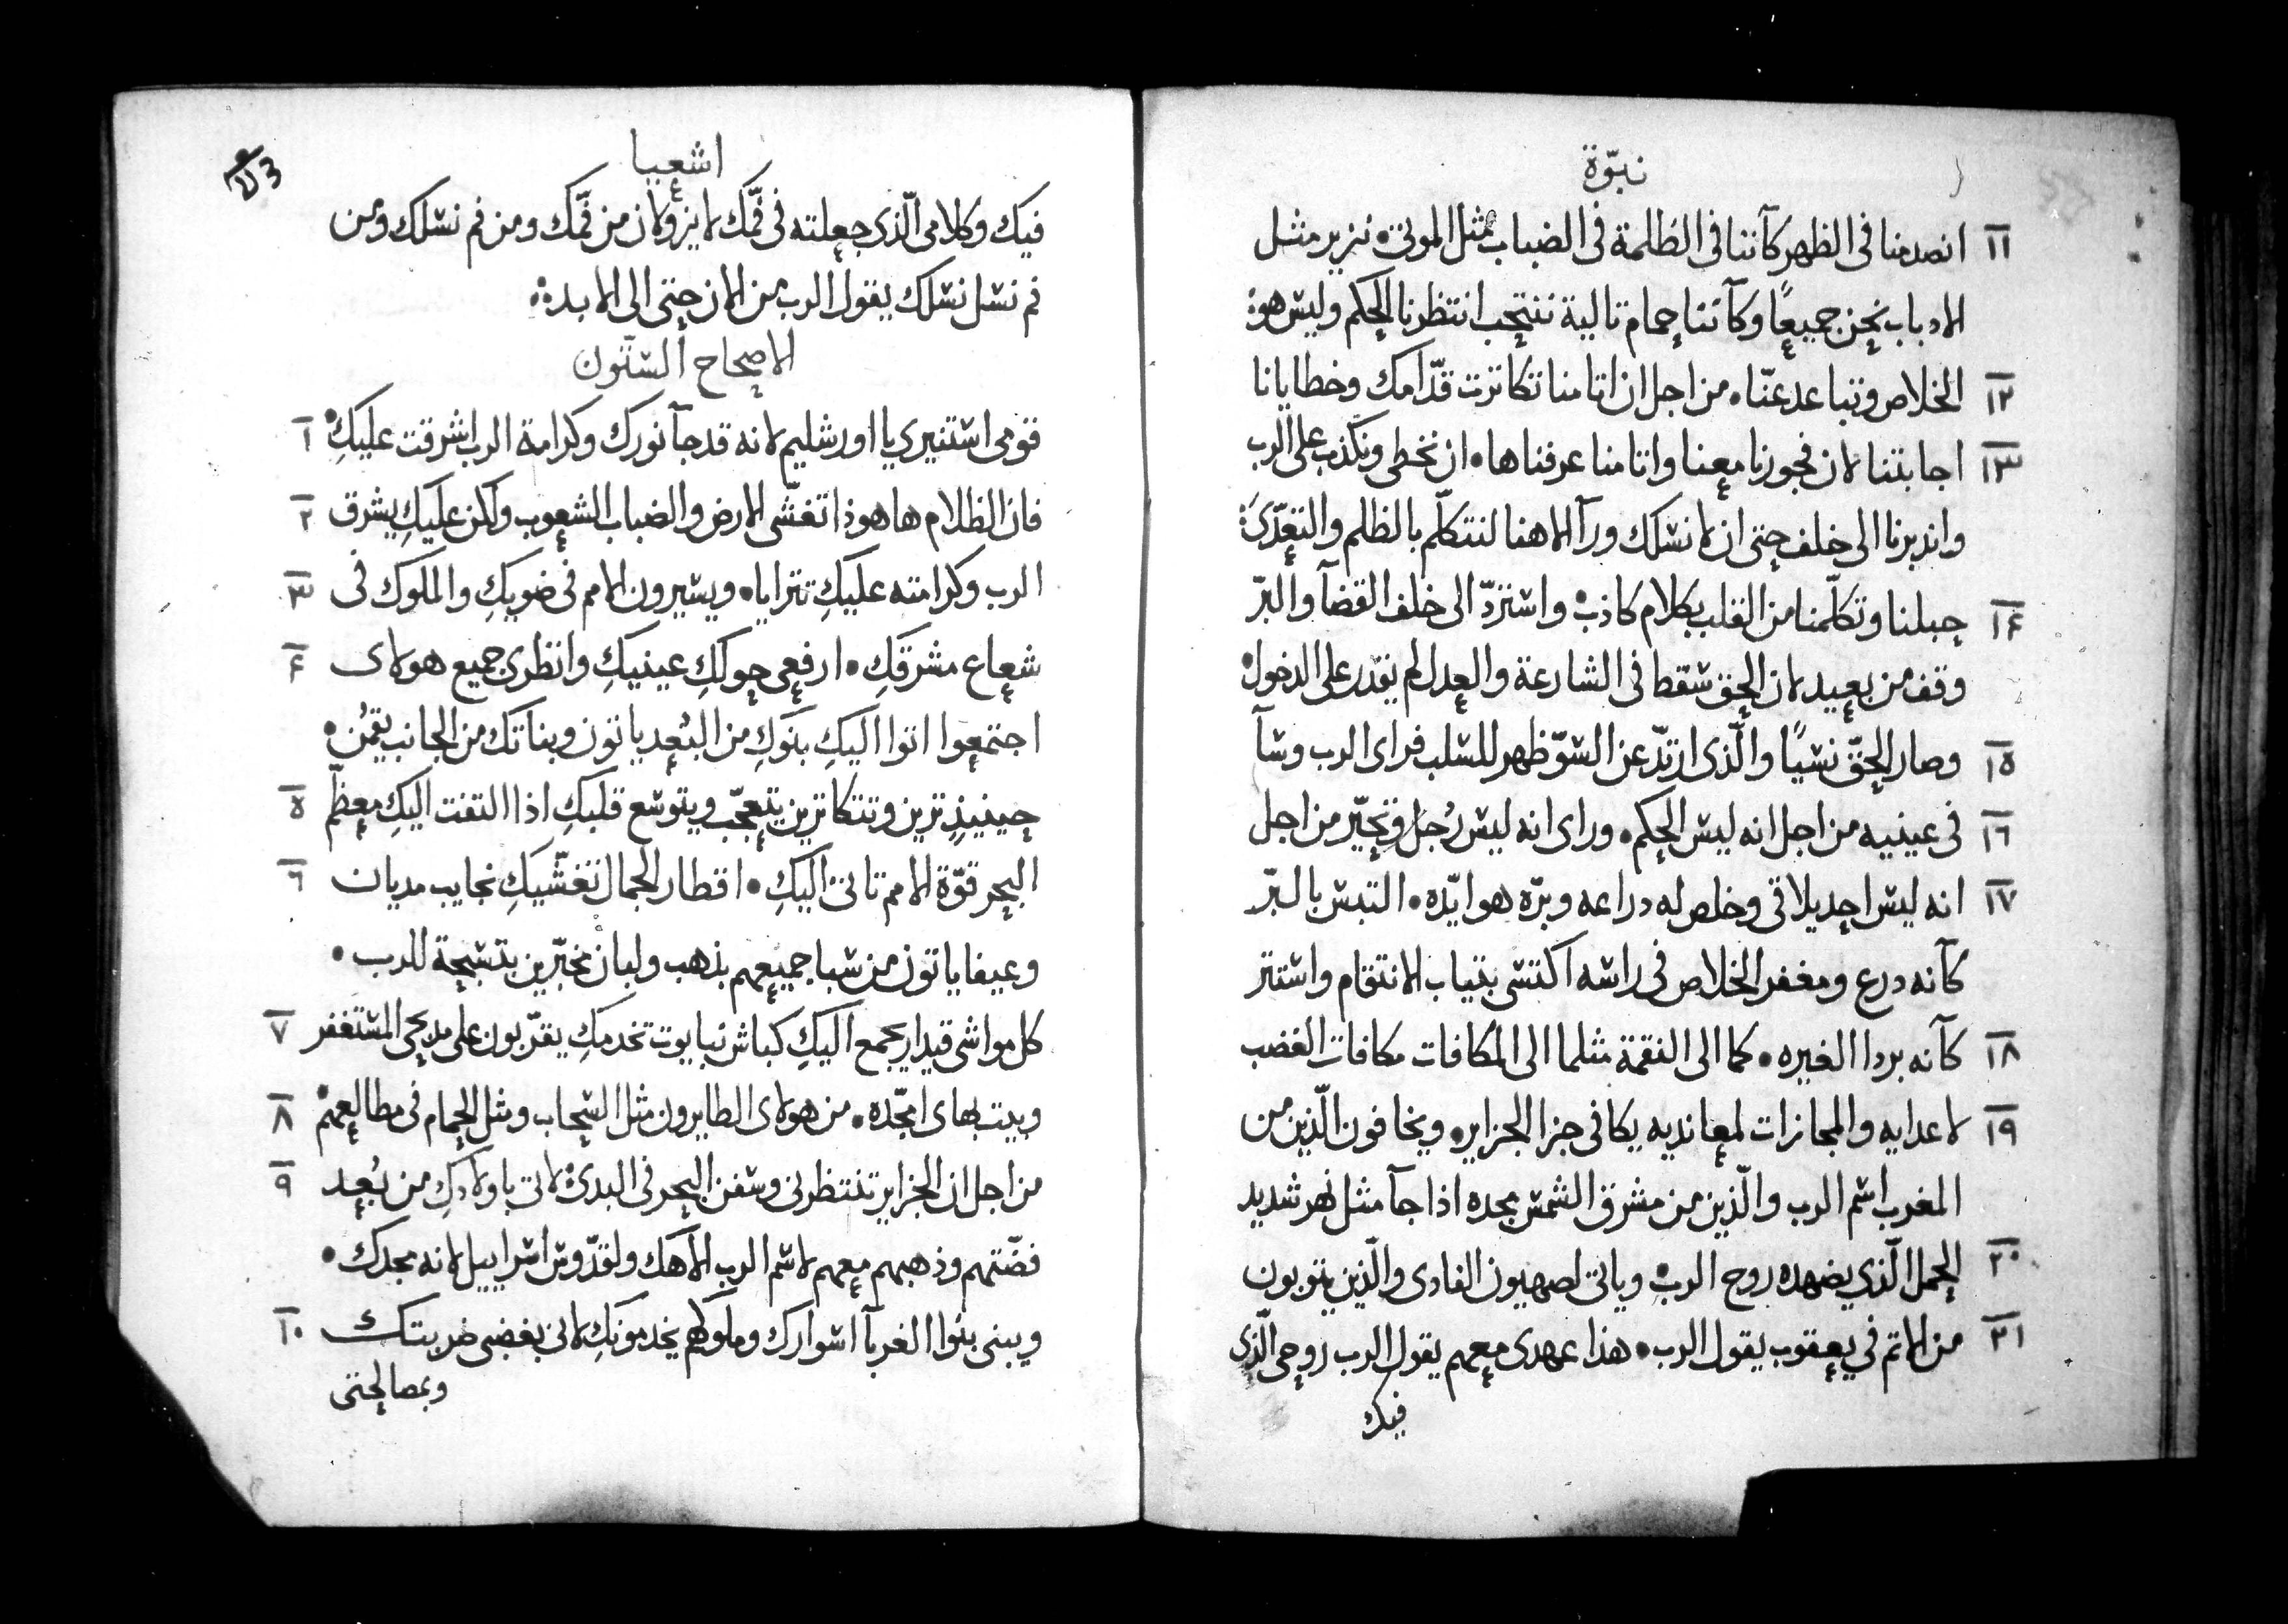 نبوّة
١١ انصدمنا فى الظهر كآننا فى الظلمة فى الضباب مثل الموتى • نزير مثل
الادباب نحن جميعًا وكآننا حمام تالية ننتحب انتظرنا الحكم وليس هو •
١٢ الخلاص وتباعد عنّا • من اجل ان اتامنا تكاثرت قدّامك وخطايانا
١٣ اجابتنا لان فجورنا معنا واتامنا عرفناها • ان نخطى ونكذب على الرب
واندبرنا الى خلف حتى ان لا نسلك ورآ الاهنا لنتكلّم بالظلم والتعدّى
١۴ حبلنا وتكلّمنا من القلب بكلام كاذب • واسترّد الى خلف القضآ والبرّ
وقف من بعيد لان الحق سقط فى الشارعة والعدل لم يقدر على الدخول •
١٥ وصار الحقّ نسيًا والّذى ارتدّ عن السوّ ظهر للسلب فراى الرب وسآ
١٦ فى عينيه من اجل انه ليس الحكم • وراى انه ليس رُجل وتحيّر من اجل
١٧ انه ليس احد يلاقى وخلص له دراعه وبرّه هو ايّده • التبس بالبرّ
كآنه درع ومغفر الخلاص فى راسه اكتسى بتياب الانتقام واستتر
١٨ كآنه بردا الغيره • كما الى النقمة مثلما الى المكافات مكافات الغضب
١٩ لاعدايه والمجازات لمعانديه يكافى جزا الجزاير • ويخافون الّذين من
المغرب اسم الرب والّذين من مشرق الشمس مجده اذا جآ مثل نهر شديد
٢٠ الحمل الّذى يضهده روح الرب • وياتى لصهيون الفادى والّذين يتوبون
٢١ من الاتم فى يعقوب يقول الرب • هذا عهدى معهم يقول الرب روحى الّذى
فيك
اشعيا
فيك وكلامى الّذى جعلته فى فمّك لا يزولان من فمّك ومن فم نسلك ومن
فم نسل نسلك يقول الرب من الان حتى الى الابد •
الاصحاح الستّون
١ قومى استنيرى يا اورشليم لانه قد جآ نورك وكرامة الرب اشرقت عليكِ •
٢ فان الظلام هاهوذا تغشّى الارض والضباب الشعوب ولكن عليكِ يشرق
٣ الرب وكرامته عليكِ تترايا • ويسيرون الامم فى ضويكِ والملوك فى
۴ شعاع مشرقكِ • ارفعى حولكِ عينيكِ وانظرى جميع هولاى
اجتمعوا اتوا اليكِ بنوكِ من البُعد ياتون وبناتك من الجانب يقمُن •
٥ حينيذٍ تزين وتتكاثرين يتعجّب ويتوسع قلبكِ اذا التفت اليكِ معظّم
٦ البحر قوّة الامم تاتى اليكِ • اقطار الجمال تغشّيكِ نجايب مديان
وعيفا ياتون من سبا جميعهم بذهب ولبان مخبّرين بتسبحة للرب •
٧ كل مواشى قيدار يجمع اليكِ كباش نبايوت تخدمكِ يقرّبون على مدبحى المستغفر
٨ وبيت بهاى امجّده • من هولاى الطايرون مثل السحاب ومثل الحمام فى مطالعهم •
٩ من اجل ان الجزاير تنتظرنى وسفن البحر فى البدى لاتى باولادكِ من بُعد
فضّتهم وذهبهم معهم لاسم الرب الآهك ولقدّوس اسراييل لانه مجدك •
١٠ ويبنى بنوا الغربآ اسوارك وملوكهم يخدمونكِ لانى بغضبى ضربتك
وبمصالحتى